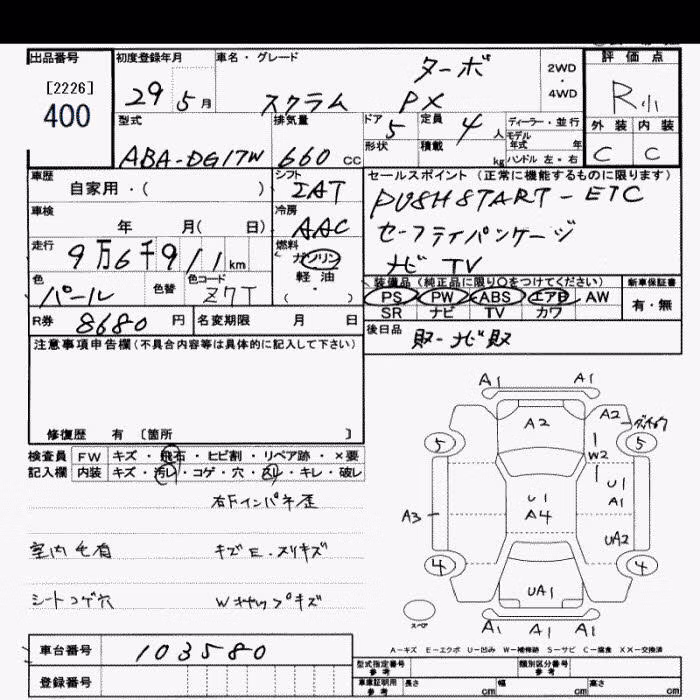 出品番号 初度登録年月 車名・グレード 評価点
[2226]
400
29 5月 スクラム ターボ PX 2WD・4WD R小
型式 排気量 ドア 定員 ディーラー・並行 外装 内装
ABA-DG17W 660 CC 5 4人 モデル年式 年 C C
形状 積載 kg ハンドル 左・右
車歴 シフト セールスポイント(正常に機能するものに限ります)
自家用・( ) IAT PUSHSTART-ETC
車検 冷房 セーフティパッケージ
年 月( 日) AAC ナビ TV
走行 燃料
9万6千911km ガソリン 軽油 ( ・ )
色 色替 色コード 装備品(純正品に限り○をつけてください) 新車保証書
パール Z7T PS PW ABS エアB AW 有・無
SR ナビ TV カワ
R券 8680円 名変期限 月 日 後日品 取-ナビ取
注意事項申告欄(不具合内容等は具体的に記入して下さい)
修復歴 有 〔箇所 〕
検査員 FW キズ・飛石・ヒビ割・リペア跡・×要
記入欄 内装 キズ・汚レ・コゲ・穴・スレ・キレ・破レ
右Fインパネ歪
室内毛有 キズE・スリキズ
シートコゲ穴 Wキャップキズ
A1 A1
A2 A2
5 5
W2
U1 U1
A1
A3 A4
UA2
4 4
UA1
スペア
A1 A1 A1
A-キズ E-エクボ U-凹み W-補修跡 S-サビ C-腐食 XX-交換済
車台番号 103580
登録番号
型式指定番号 参考 類別区分番号 参考
車庫証明用 参考 長さ cm 幅 cm 高さ cm